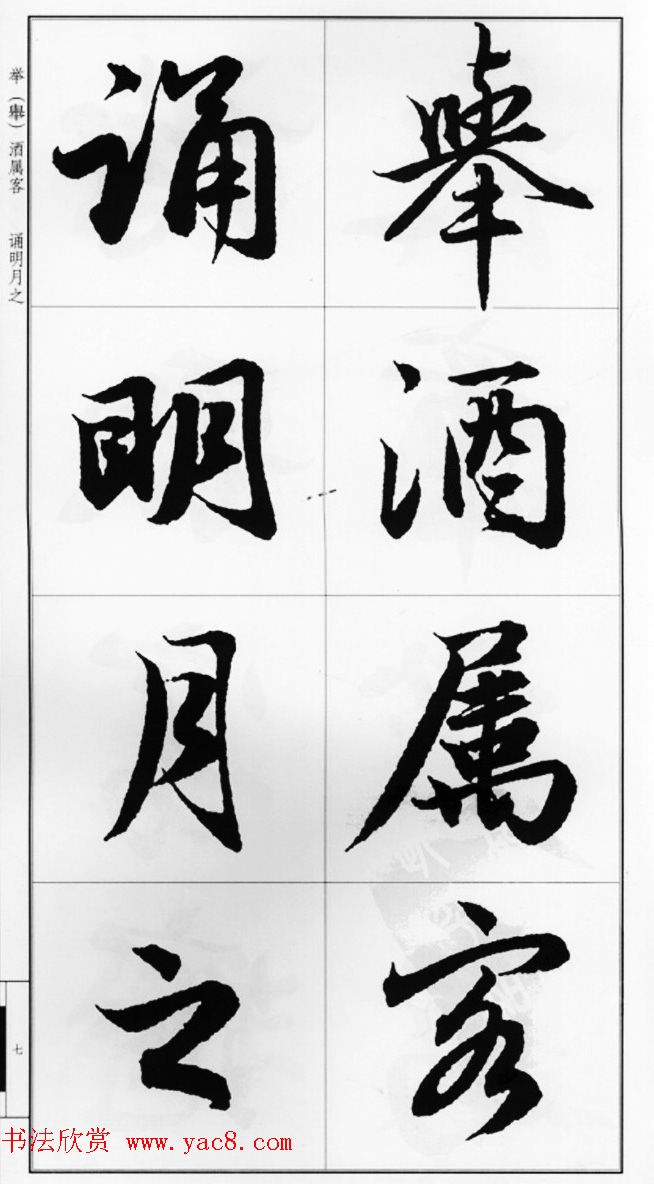 舉酒属客
誦明月之
举（舉）酒属客　诵明月之
七
书法欣赏 www.yac8.com